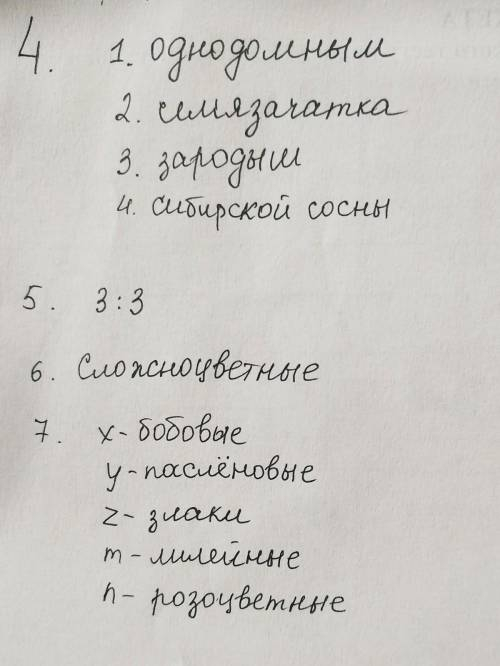 4. 1. однодомным
2. семязачатка
3. зародыш
4. сибирской сосны
5. 3:3
6. Сложноцветные
7. x- бобовые
y- паслёновые
z- злаки
m- лилейные
n- розоцветные